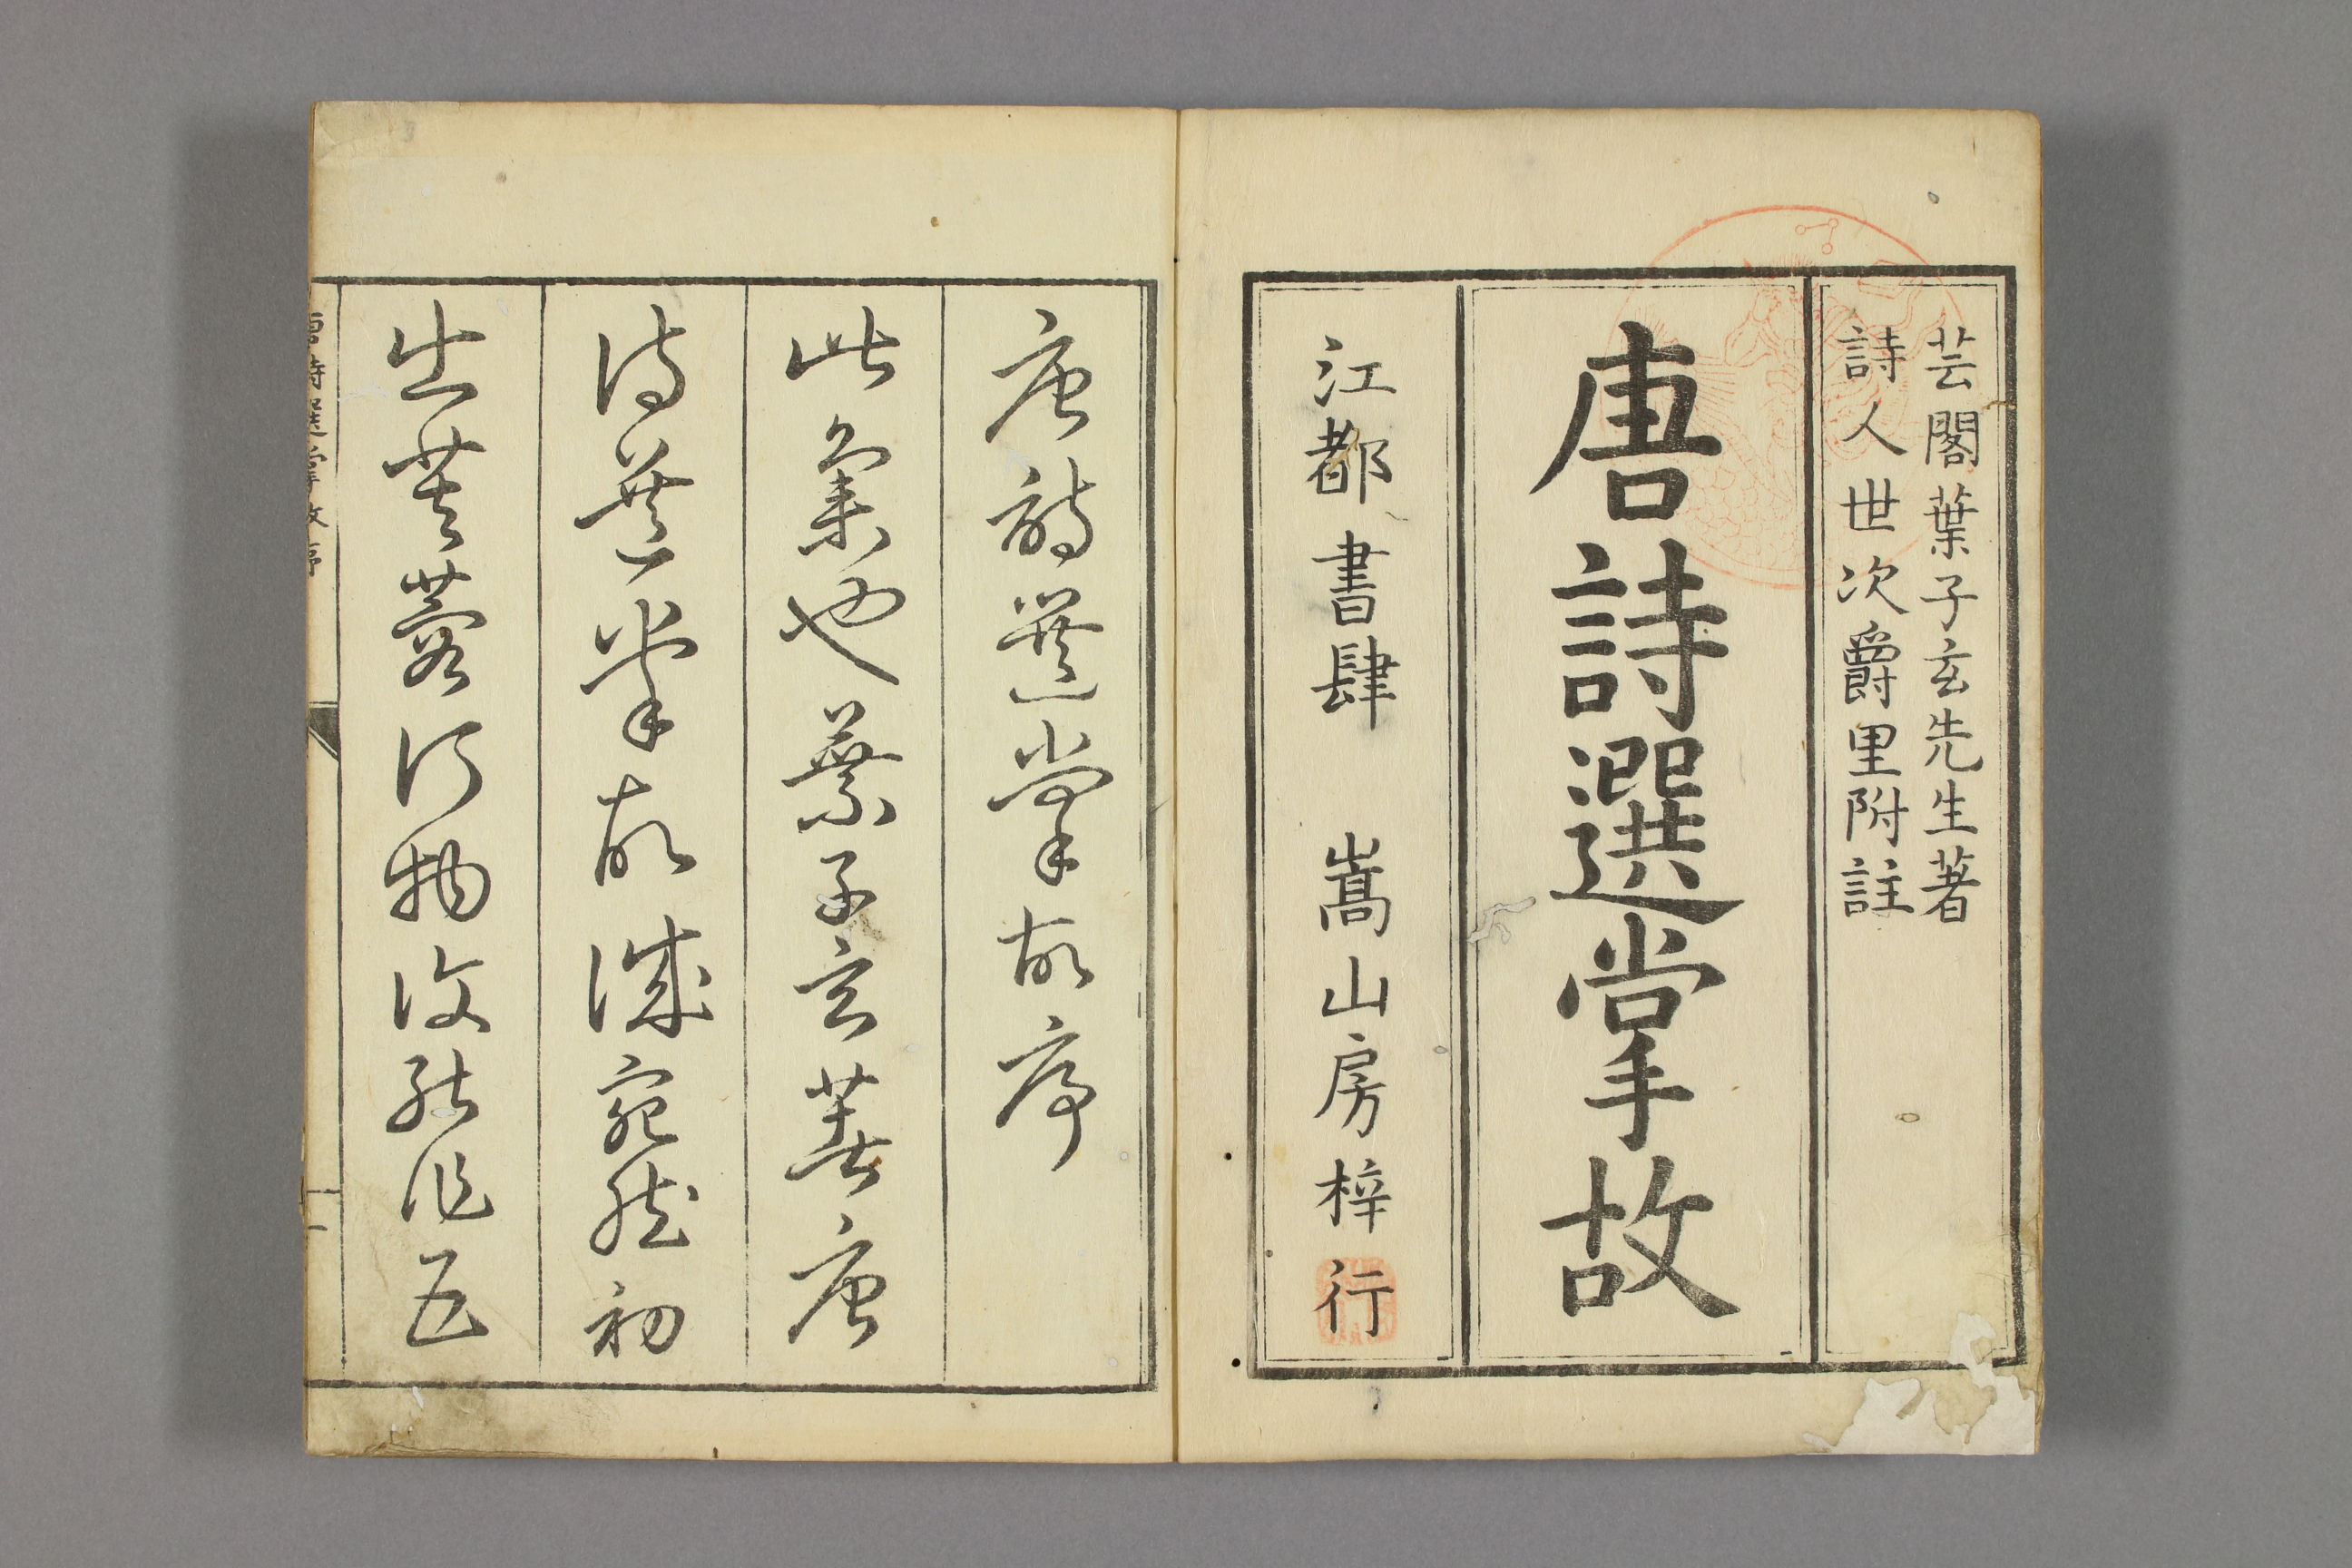 芸閣葉子玄先生著
詩人世次爵里附註
唐詩選掌故
江都書肆　嵩山房梓行
唐詩選掌故序
此集也葉子玄著唐
詩選掌故誠宛然初
出芙蓉何物復能作五
唐詩選掌故序